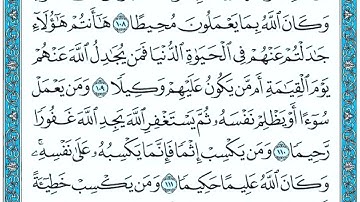 وَكَانَ ٱللَّهُ بِمَا يَعْمَلُونَ مُحِيطًا ١٠٨ هَٰٓأَنتُمْ هَٰٓؤُلَآءِ
جَٰدَلْتُمْ عَنْهُمْ فِى ٱلْحَيَوٰةِ ٱلدُّنْيَا فَمَن يُجَٰدِلُ ٱللَّهَ عَنْهُمْ
يَوْمَ ٱلْقِيَٰمَةِ أَم مَّن يَكُونُ عَلَيْهِمْ وَكِيلًا ١٠٩ وَمَن يَعْمَلْ
سُوٓءًا أَوْ يَظْلِمْ نَفْسَهُۥ ثُمَّ يَسْتَغْفِرِ ٱللَّهَ يَجِدِ ٱللَّهَ غَفُورًا
رَّحِيمًا ١١٠ وَمَن يَكْسِبْ إِثْمًا فَإِنَّمَا يَكْسِبُهُۥ عَلَىٰ نَفْسِهِۦ ۚ
وَكَانَ ٱللَّهُ عَلِيمًا حَكِيمًا ١١١ وَمَن يَكْسِبْ خَطِيٓـَٔةً